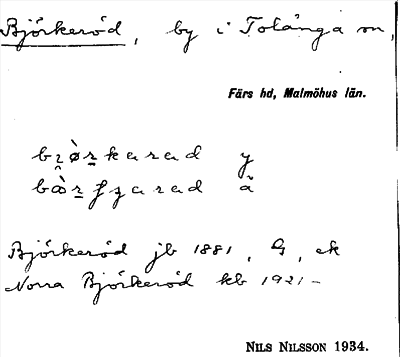 Björkeröd, by i Tolånga sn,
Färs hd, Malmöhus län.
y
ä
Björkeröd jb 1881, G, ek
Norra Björkeröd kb 1921–
NILS NILSSON 1934.